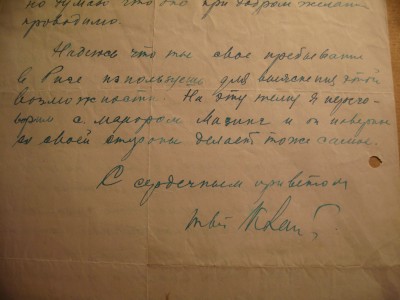 но думаю что оно при добром желании
проводимо.
Надеюсь что ты свое пребывание
в Риге используешь для выяснения этой
возможности. На эту тему я перего-
ворил с майором Мазинг и он наверно
со своей стороны делает тоже самое.
С сердечным приветом
твой